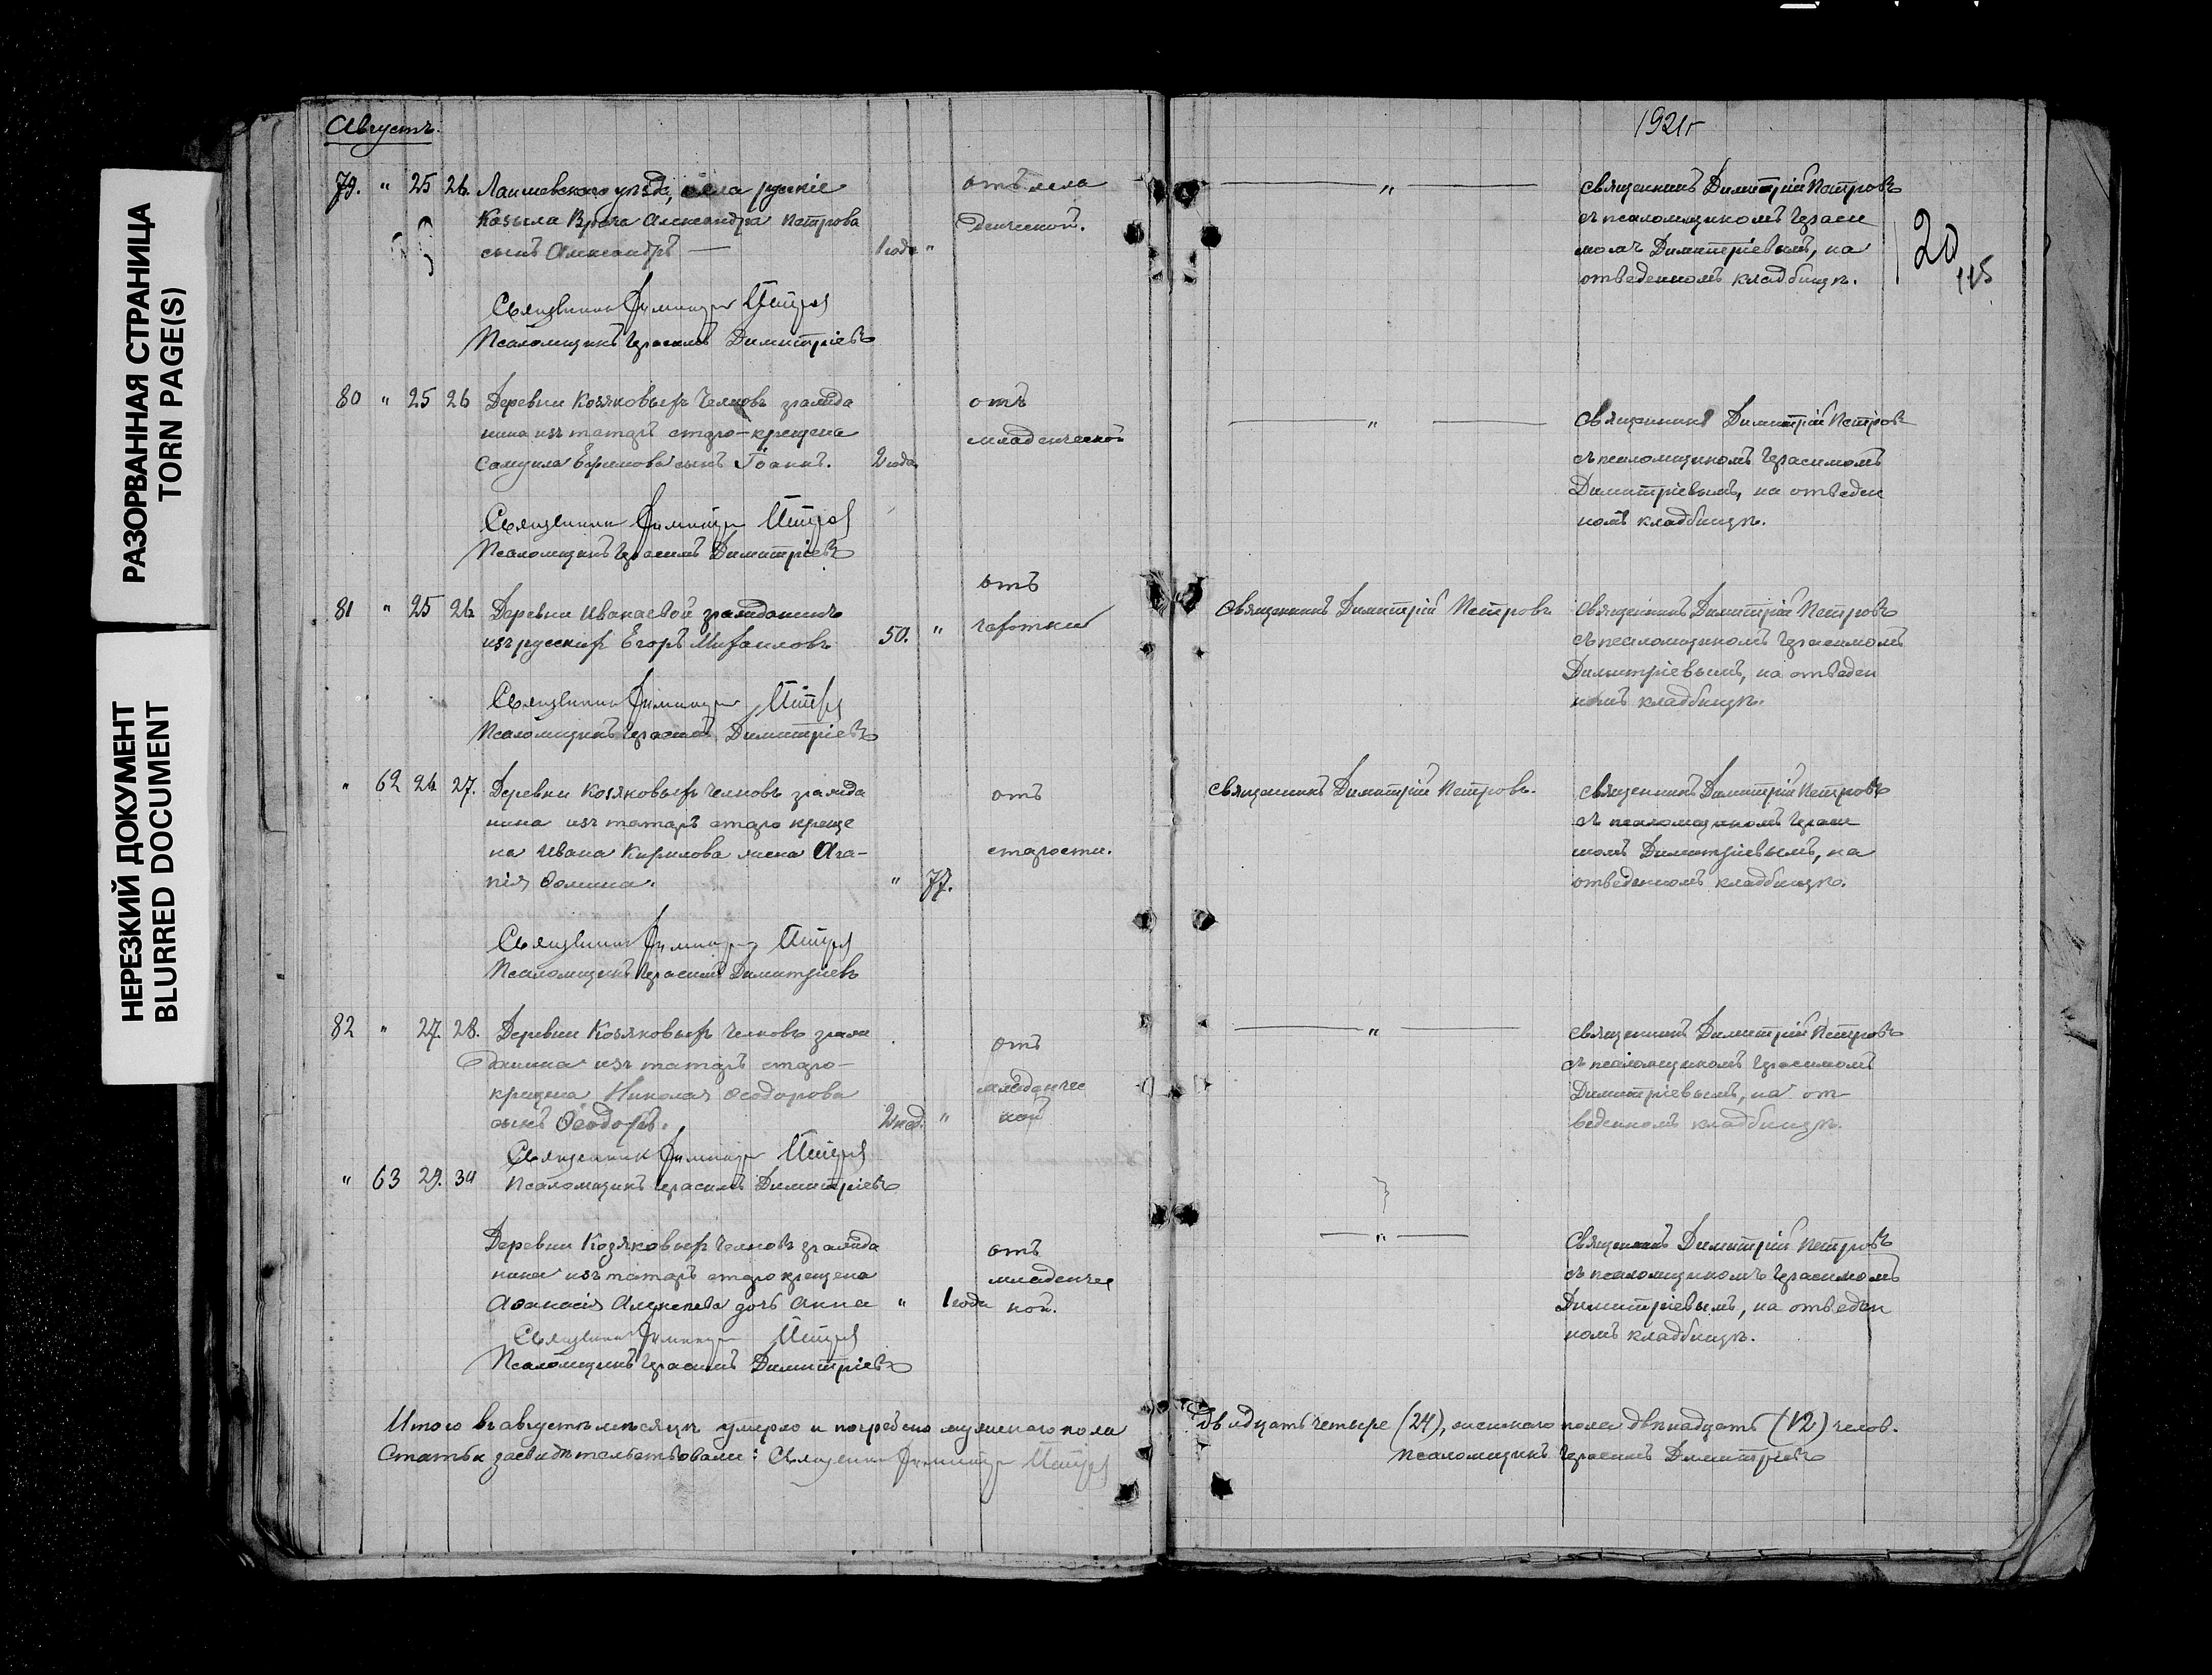 РАЗОРВАННАЯ СТРАНИЦА
TORN PAGE(S)
НЕРЕЗКИЙ ДОКУМЕНТ
BLURRED DOCUMENT
Августъ.
79. " 25 26. Лаишевскаго уѣзда, села русскіе
Козыла Врача Александра Петрова
сынъ Александръ — 1 года "
отъ мла
денческой.
Священникъ Димитрій Петровъ
Псаломщикъ Герасимъ Димитріевъ
80 " 25 26 Деревни Козяковыхъ Челновъ гражда
нина изъ татаръ старо-крещена
Самуила Ефимова сынъ Іоаннъ. 2 года
отъ
младенческой
Священникъ Димитрій Петровъ
Псаломщикъ Герасимъ Димитріевъ
81 " 25 26 Деревни Иванаевой гражданинъ
изъ русскихъ Егоръ Михаиловъ 50. "
отъ
чахотки
Священникъ Димитрій Петровъ
Псаломщикъ Герасимъ Димитріевъ
" 62 26 27. Деревни Козяковыхъ Челновъ гражда
нина изъ татаръ старо креще
на Ивана Кирилова жена Ага-
пія Фомина. " 77.
отъ
старости.
Священникъ Димитрій Петровъ
Псаломщикъ Герасимъ Димитріевъ
82 " 27. 28. Деревни Козяковыхъ Челновъ граж
данина изъ татаръ старо-
крещена Николая Ѳеодорова
сынъ Ѳеодоръ. 2 нед. "
отъ
младенчес
кой
Священникъ Димитрій Петровъ
" 63 29. 30 Псаломщикъ Герасимъ Димитріевъ
Деревни Козяковыхъ Челновъ гражда
нина изъ татаръ старокрещена
Аѳанасія Алексѣева дочь Анна " 1 года
отъ
младенчес
кой.
Священникъ Димитрій Петровъ
Псаломщикъ Герасимъ Димитріевъ
Итого въ августѣ мѣсяцѣ умерло и погребено мужескаго пола
Статьи засвидѣтельствовали: Священникъ Димитрій Петровъ
1921 г
120
115
— " — Священникъ Димитрій Петровъ
съ псаломщикомъ Гераси
момъ Димитріевымъ, на
отведенномъ кладбищѣ.
— " — Священникъ Димитрій Петровъ
съ псаломщикомъ Герасимомъ
Димитріевымъ, на отведен
номъ кладбищѣ.
Священникъ Димитрій Петровъ. Священникъ Димитрій Петровъ
съ псаломщикомъ Герасимомъ
Димитріевымъ, на отведен
номъ кладбищѣ.
Священникъ Димитрій Петровъ. Священникъ Димитрій Петровъ
съ псаломщикомъ Гераси
момъ Димитріевымъ, на
отведенномъ кладбищѣ.
— " — Священникъ Димитрій Петровъ
съ псаломщикомъ Герасимомъ
Димитріевымъ, на от-
веденномъ кладбищѣ.
— " — Священникъ Димитрій Петровъ
съ псаломщикомъ Герасимомъ
Димитріевымъ, на отведен
номъ кладбищѣ.
двадцать четыре (24), женскаго пола двѣнадцать (12) челов.
Псаломщикъ Герасимъ Димитріевъ